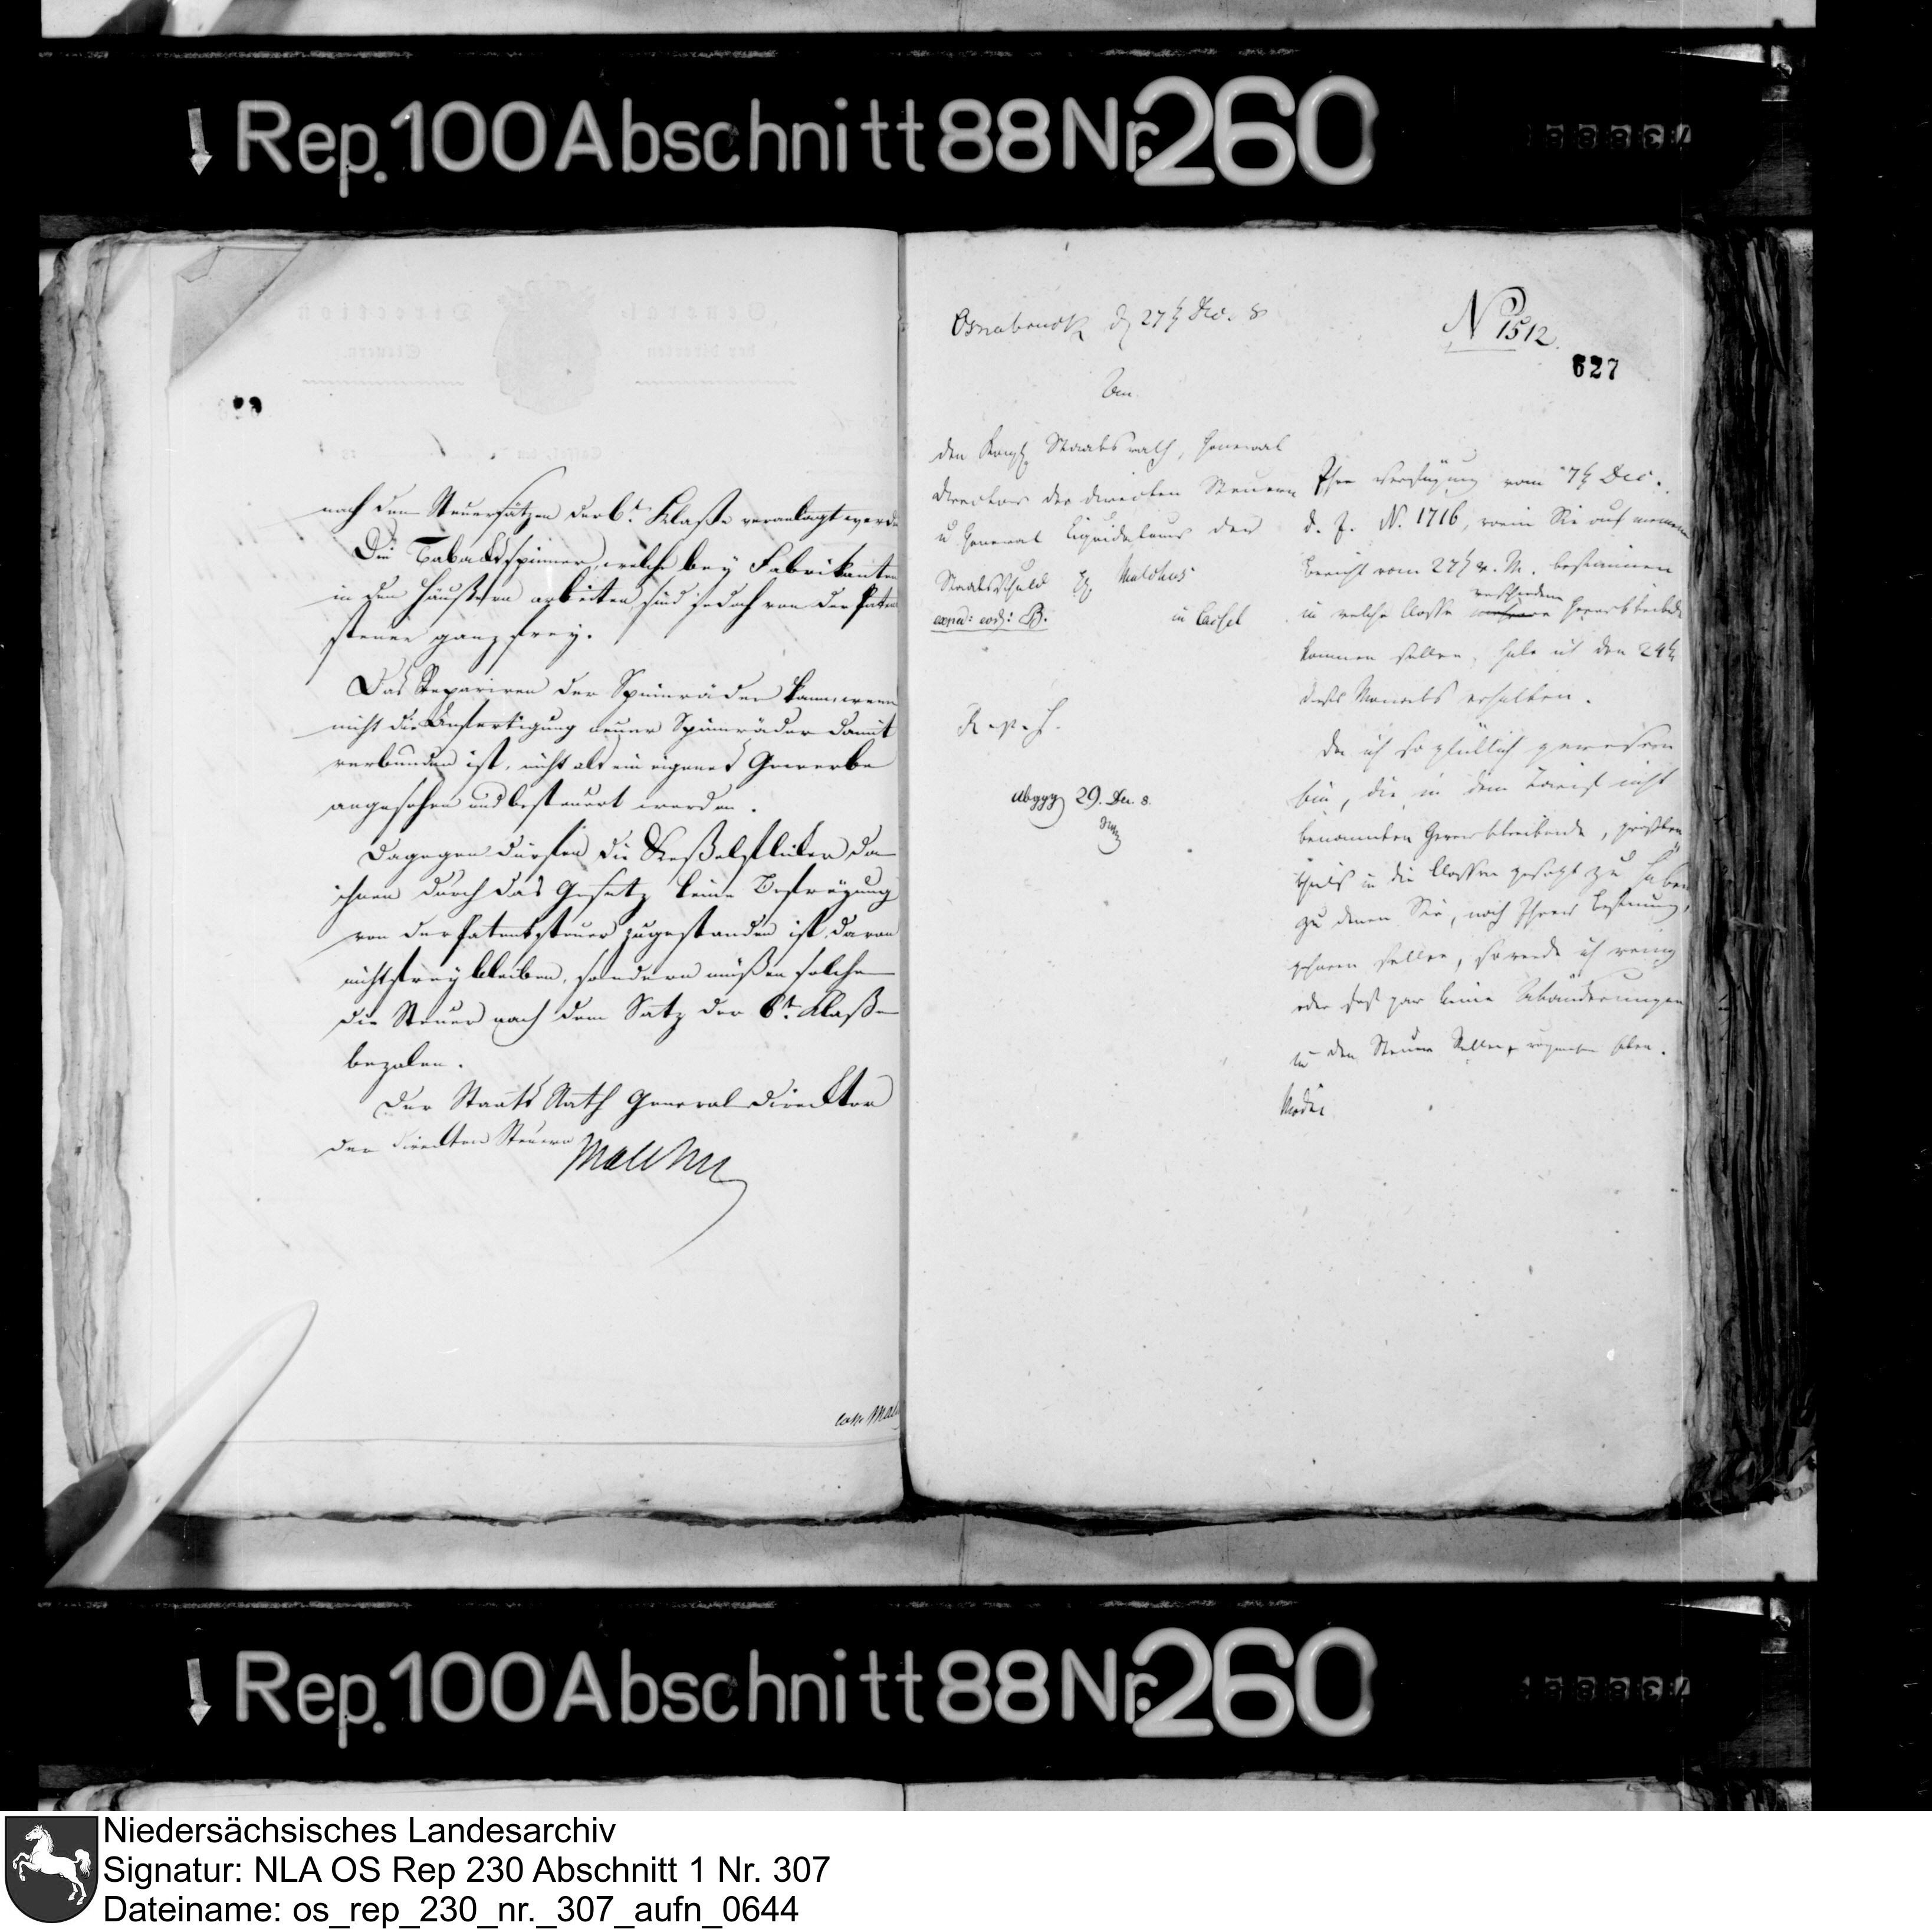 Rep. 100 Abschnitt 88 Nr. 260
nach den Steuersätzen der 6t. Klaße veranlagt werde
Die Tabacksspinner, welche bey Fabrikanten
in den Häußern arbeiten, sind jedoch von der Patent
steuer ganz frey.
Das Repariren der Spinnräder kann, wenn
nicht die Anfertigung neuer Spinnräder damit
verbunden ist, nicht als ein eigenes Gewerbe
angesehen und besteuert werden.
Dagegen dürfen die Keßelflicker da
ihnen durch das Gesetz keine Befreyung
von der Patentsteuer zugestanden ist, davon
nicht frey bleiben, sondern müßen solche
die Steuer nach dem Satz der 6t. Klaße
bezalen.
Der Staats Rath General Direcktor
der direckten Steuern
Malchus
Osnabruck d 27t Dec. 8
N 1512
627
An
den Königl Staatsrath, General
Director der directen Steuern
u General Liquidateur der
Staatsschuld H Malchus
in Cassel
R. p. s.
abggg 29. Dec. 8.
Ihre Verfügung vom 7t Dec.
d. J. N. 1716, worin Sie auf meinen
Bericht vom 27t v. M. bestimmen
in welche Classe verschiedene Gewerbtreibende
kommen sollen, habe ich den 24t
dieses Monats erhalten.
Da ich so glücklich gewesen
bin, die in dem Tarif nicht
benannten Gewerbtreibende, größten
theils in die Classen gesetzt zu haben
zu denen Sie, nach Ihrer Bestimmung,
gehören sollen, so werde ich wenig
oder fast gar keine Abänderungen
in den Steuer Rollen haben.
Rep. 100 Abschnitt 88 Nr. 260
Niedersächsisches Landesarchiv
Signatur: NLA OS Rep 230 Abschnitt 1 Nr. 307
Dateiname: os_rep_230_nr._307_aufn_0644